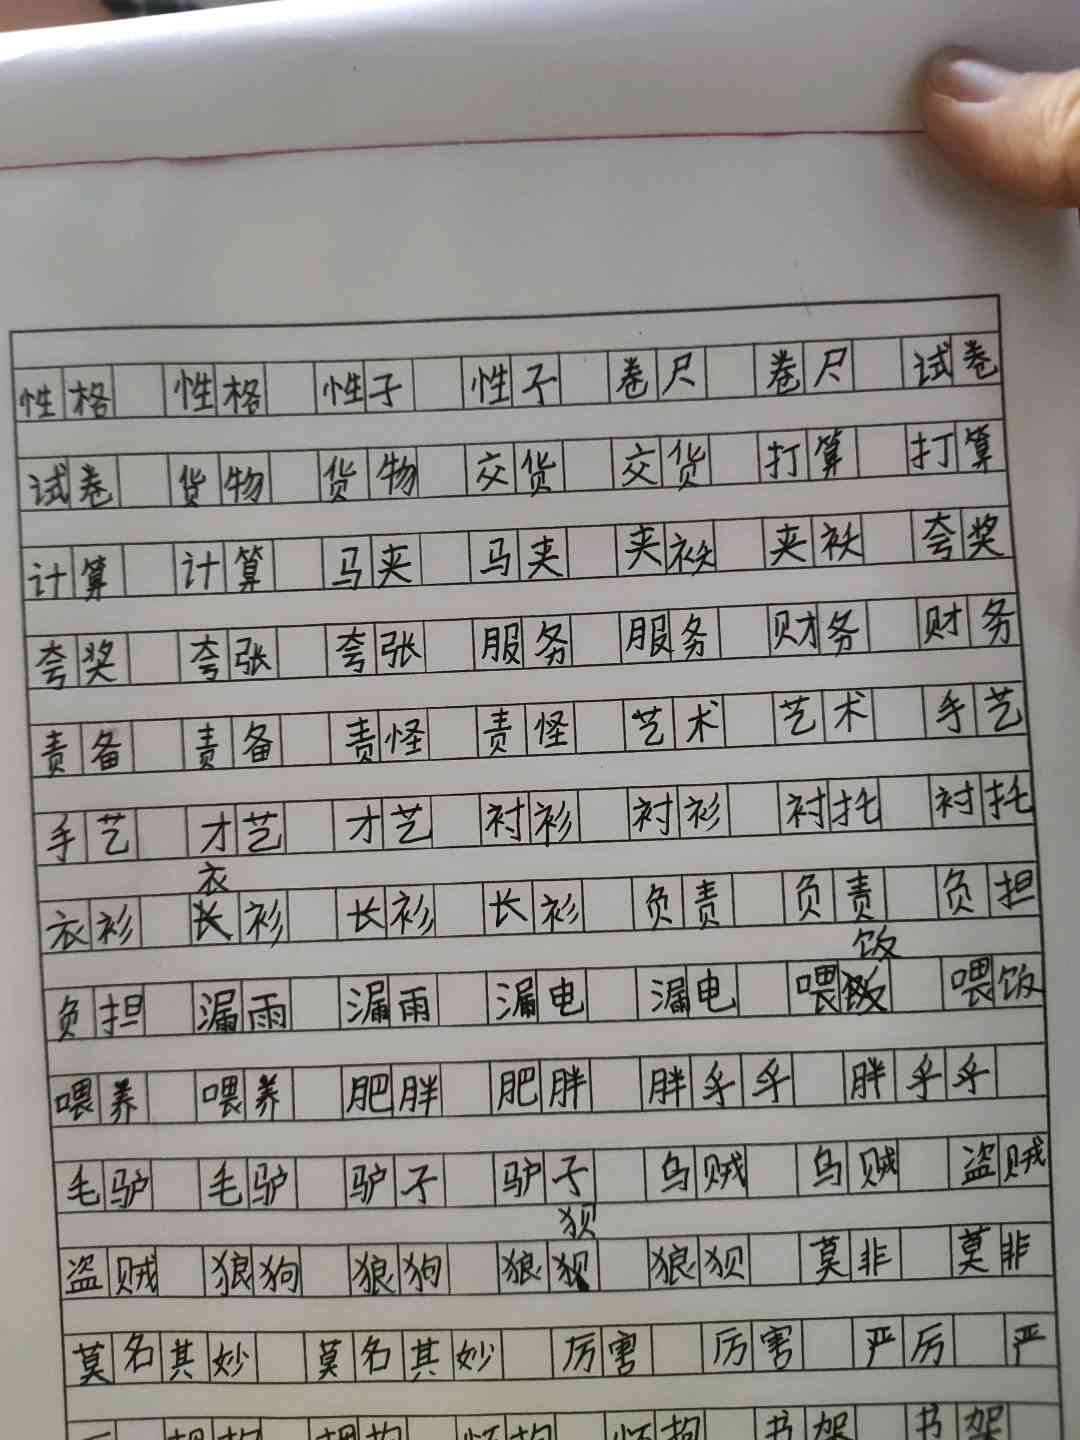 性格 性格 性子 性子 卷尺 卷尺 试卷
试卷 货物 货物 交货 交货 打算 打算
计算 计算 马夹 马夹 夹袄 夹袄 夸奖
夸奖 夸张 夸张 服务 服务 财务 财务
责备 责备 责怪 责怪 艺术 艺术 手艺
手艺 才艺 才艺 衬衫 衬衫 衬托 衬托
衣
衣衫 长衫 长衫 长衫 负责 负责 负担
饭
负担 漏雨 漏雨 漏电 漏电 喂 喂饭
喂养 喂养 肥胖 肥胖 胖乎乎 胖乎乎
毛驴 毛驴 驴子 驴子 乌贼 乌贼 盗贼
狈
盗贼 狼狗 狼狗 狼狈 狼狈 莫非 莫非
莫名其妙 莫名其妙 厉害 厉害 严厉 严
书架 书架